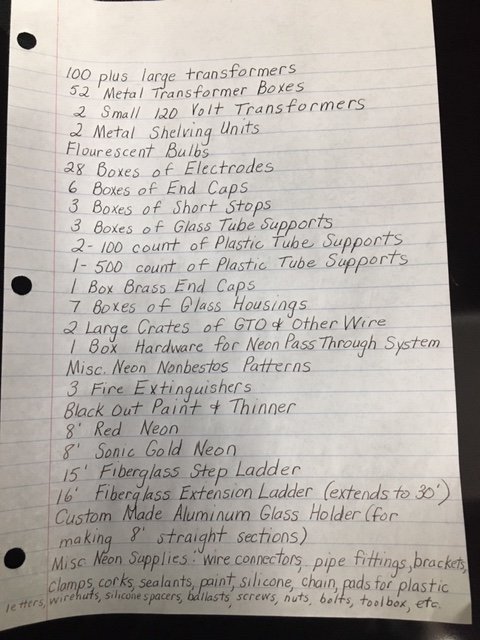 100 plus large transformers
52 Metal Transformer Boxes
2 Small 120 Volt Transformers
2 Metal Shelving Units
Flourescent Bulbs
28 Boxes of Electrodes
6 Boxes of End Caps
3 Boxes of Short Stops
3 Boxes of Glass Tube Supports
2-100 count of Plastic Tube Supports
1-500 count of Plastic Tube Supports
1 Box Brass End Caps
7 Boxes of Glass Housings
2 Large Crates of GTO & Other Wire
1 Box Hardware for Neon Pass Through System
Misc. Neon Nonbestos Patterns
3 Fire Extinguishers
Black Out Paint & Thinner
8' Red Neon
8' Sonic Gold Neon
15' Fiberglass Step Ladder
16' Fiberglass Extension Ladder (extends to 30')
Custom Made Aluminum Glass Holder (for
making 8' straight sections)
Misc Neon Supplies: wire connectors, pipe fittings, brackets,
clamps, corks, sealants, paint, silicone, chain, pads for plastic
letters, wirenuts, silicone spacers, ballasts, screws, nuts, bolts, toolbox, etc.